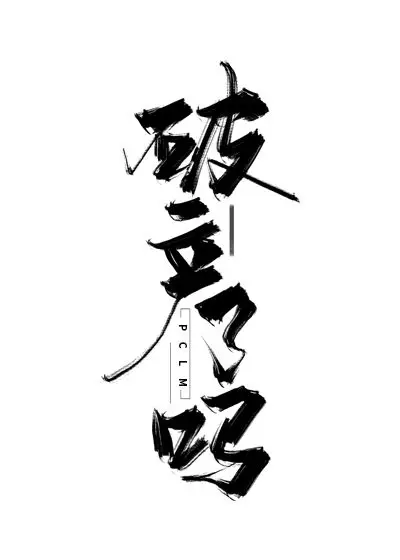 破产了吗
PCLM